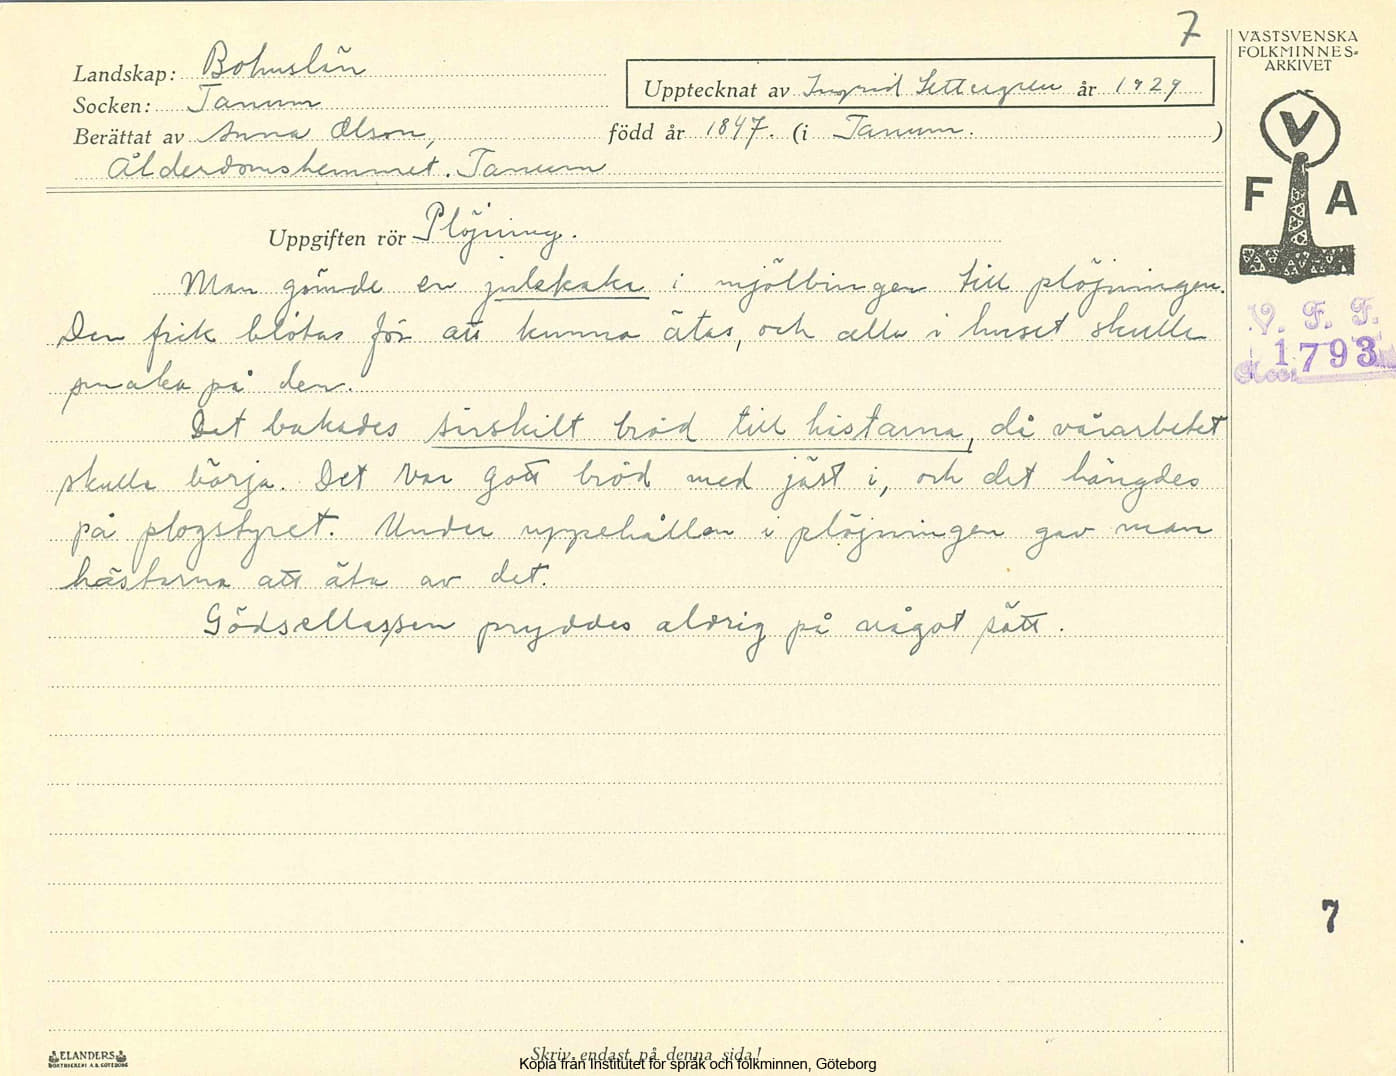 7
VÄSTSVENSKA
FOLKMINNES-
ARKIVET
Landskap: Bohuslän
Socken: Tanum
Upptecknat av Ingrid Settergren år 1929
Berättat av Anna Olson, född år 1847. (i Tanum. )
Ålderdomshemmet. Tanum
V
F A
Uppgiften rör Plöjning.
Man gömde en julekaka i mjölbingen till plöjningen.
Den fick blötas för att kunna ätas, och alla i huset skulle
smaka på den.
V. F. F.
Acc. 1793
Det bakades särskilt bröd till hästarna, då vårarbetet
skulle börja. Det var gott bröd med jäst i, och det hängdes
på plogstyret. Under uppehållen i plöjningen gav man
hästarna att äta av det.
Gödsellassen pryddes aldrig på något sätt.
7
ELANDERS
BOKTRYCKERI A.B. GÖTEBORG
Skriv endast på denna sida!
Kopia från Institutet för språk och folkminnen, Göteborg